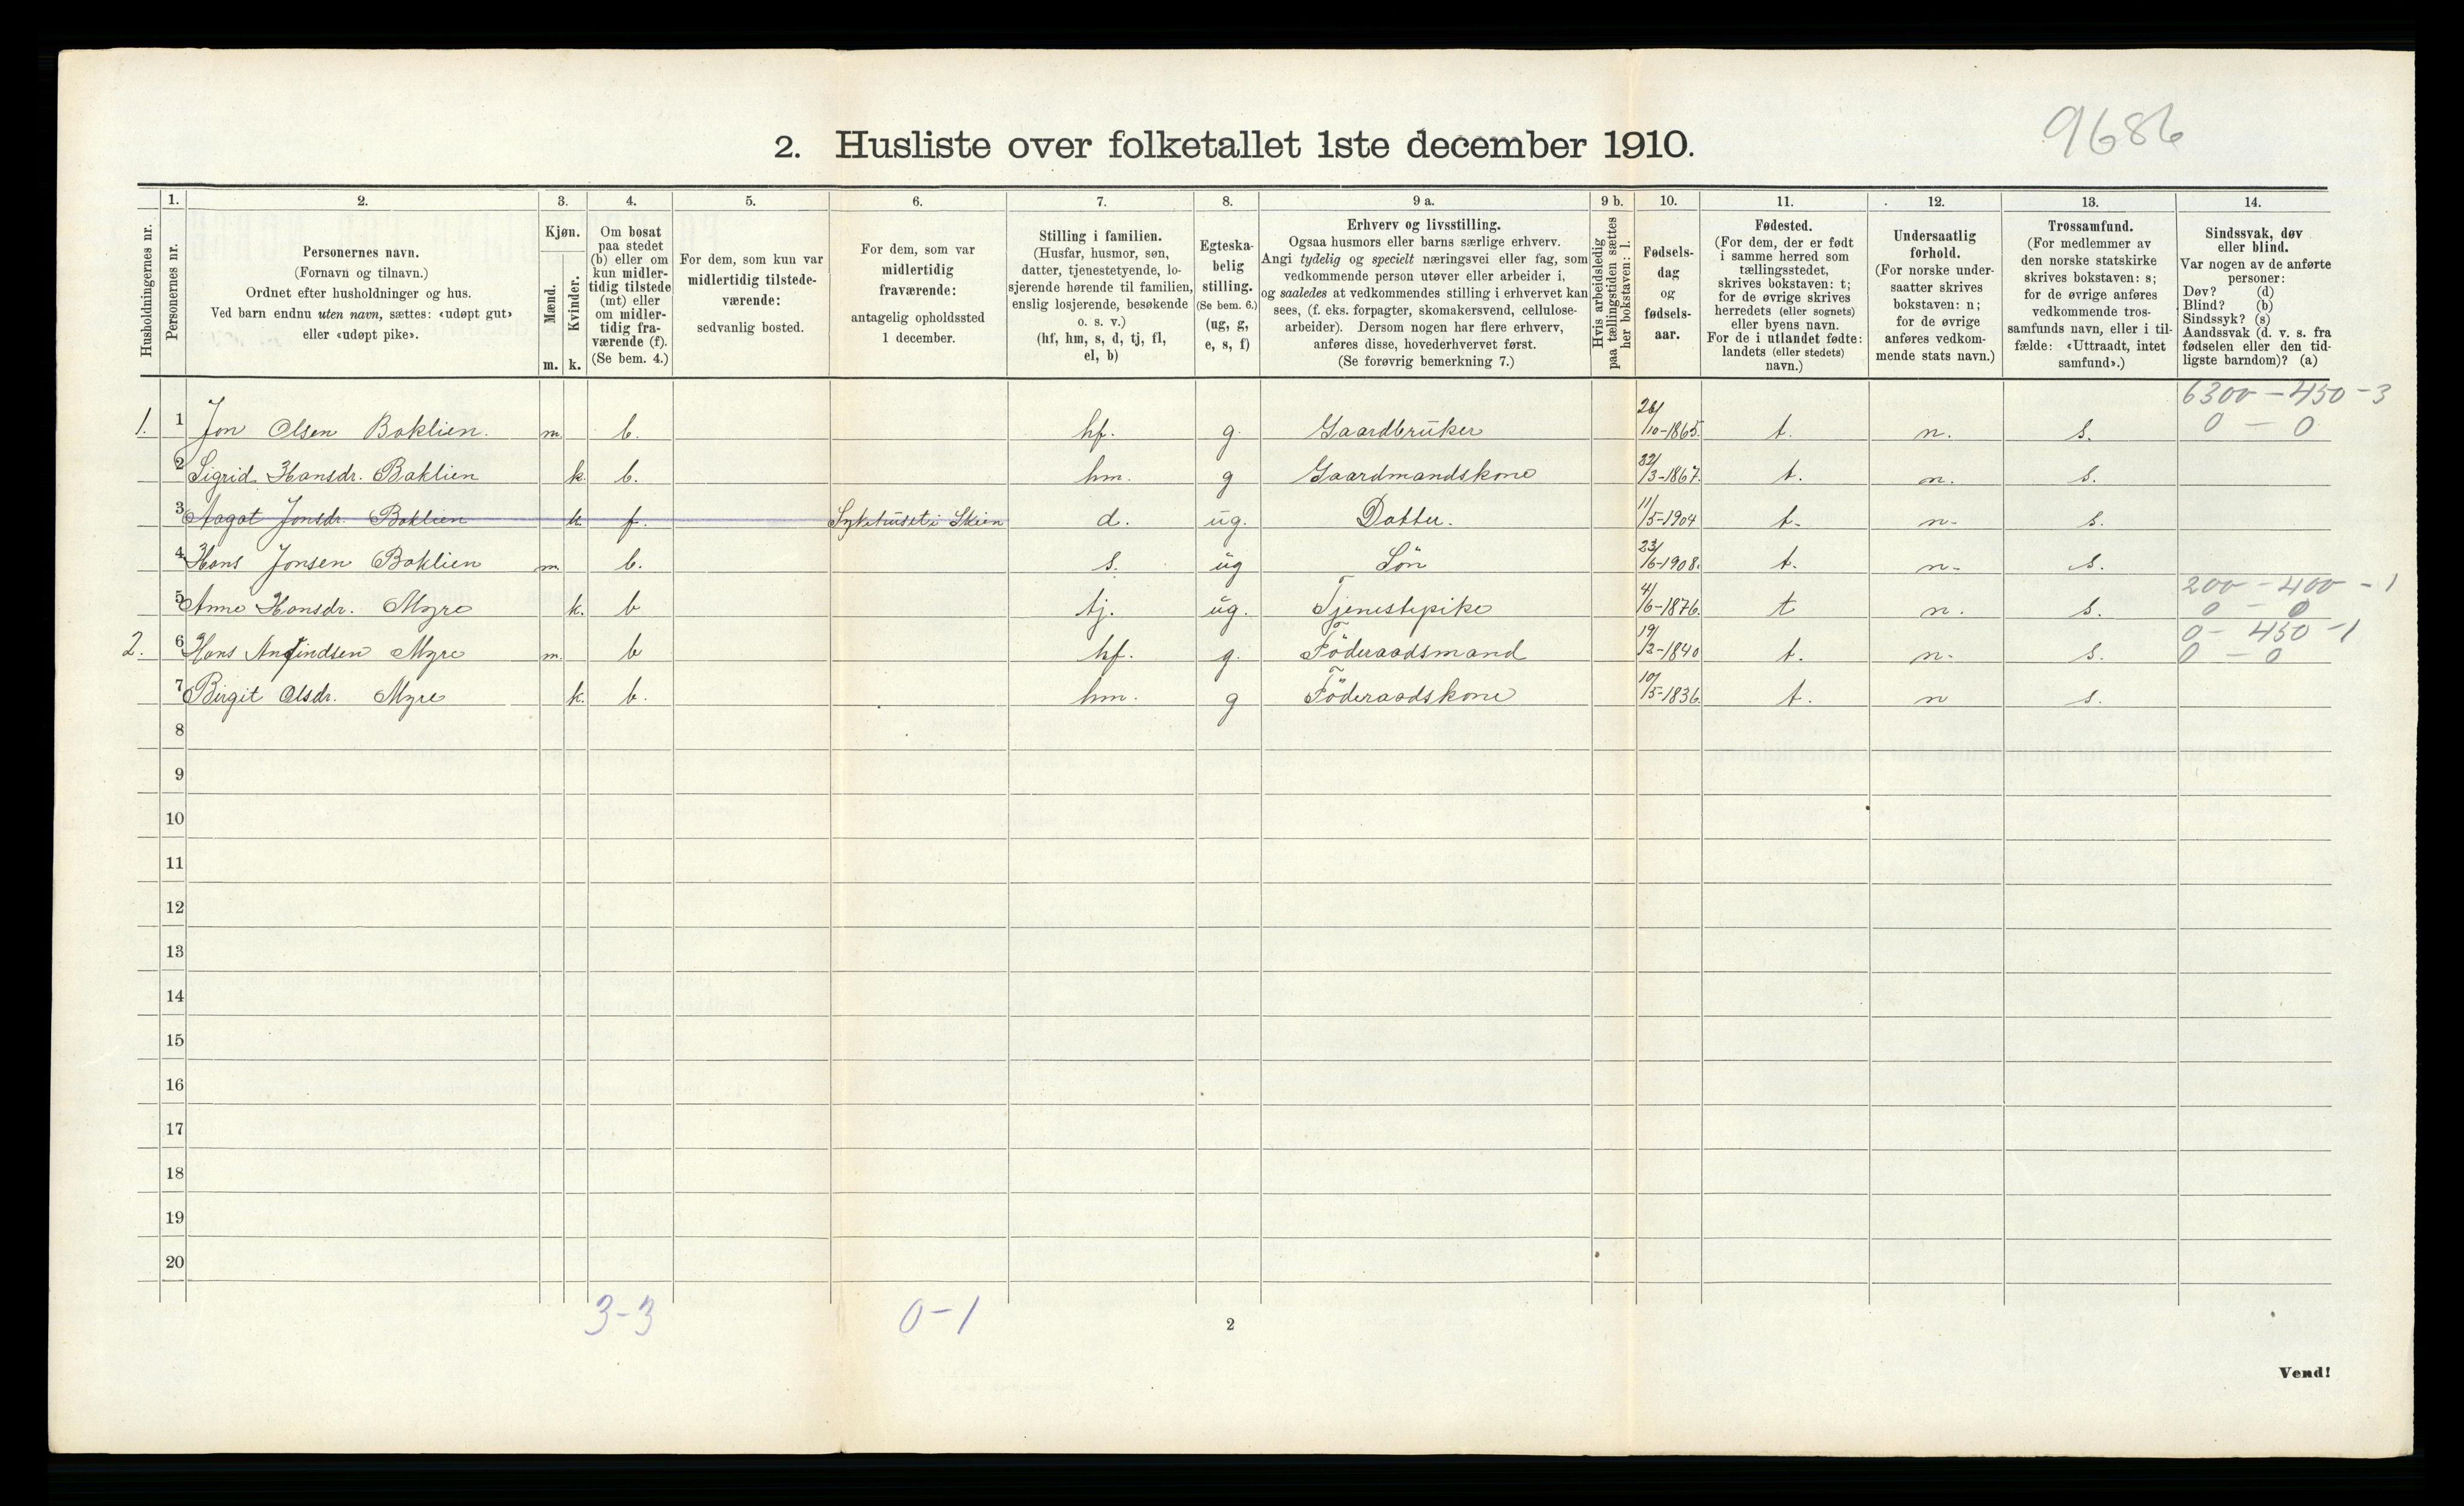 9686
2. Husliste over folketallet 1ste december 1910.
Husholdningernes nr.
1.
Personernes nr.
2.
Personernes navn.
(Fornavn og tilnavn.)
Ordnet efter husholdninger og hus.
Ved barn endnu uten navn, sættes: «udøpt gut»
eller «udøpt pike».
3.
Kjøn.
Mænd.
m.
Kvinder.
k.
4.
Om bosat
paa stedet
(b) eller om
kun midler-
tidig tilstede
(mt) eller
om midler-
tidig fra-
værende (f).
(Se bem. 4.)
5.
For dem, som kun var
midlertidig tilstede-
værende:
sedvanlig bosted.
6.
For dem, som var
midlertidig
fraværende:
antagelig opholdssted
1 december.
7.
Stilling i familien.
(Husfar, husmor, søn,
datter, tjenestetyende, lo-
sjerende hørende til familien,
enslig losjerende, besøkende
o. s. v.)
(hf, hm, s, d, tj, fl,
el, b)
8.
Egteska-
belig
stilling.
(Se bem. 6.)
(ug, g,
e, s, f)
9 a.
Erhverv og livsstilling.
Ogsaa husmors eller barns særlige erhverv.
Angi tydelig og specielt næringsvei eller fag, som
vedkommende person utøver eller arbeider i,
og saaledes at vedkommendes stilling i erhvervet kan
sees, (f. eks. forpagter, skomakersvend, cellulose-
arbeider). Dersom nogen har flere erhverv,
anføres disse, hovederhvervet først.
(Se forøvrig bemerkning 7.)
9 b.
Hvis arbeidsledig
paa tællingstiden sættes
her bokstaven: l.
10.
Fødsels-
dag
og
fødsels-
aar.
11.
Fødested.
(For dem, der er født
i samme herred som
tællingsstedet,
skrives bokstaven: t;
for de øvrige skrives
herredets (eller sognets)
eller byens navn.
For de i utlandet fødte:
landets (eller stedets)
navn.)
12.
Undersaatlig
forhold.
(For norske under-
saatter skrives
bokstaven: n;
for de øvrige
anføres vedkom-
mende stats navn.)
13.
Trossamfund.
(For medlemmer av
den norske statskirke
skrives bokstaven: s;
for de øvrige anføres
vedkommende tros-
samfunds navn, eller i til-
fælde: «Uttraadt, intet
samfund».)
14.
Sindssvak, døv
eller blind.
Var nogen av de anførte
personer:
Døv? (d)
Blind? (b)
Sindssyk? (s)
Aandssvak (d. v. s. fra
fødselen eller den tid-
ligste barndom)? (a)
6300 - 450 - 3
1. 1 Jon Olsen Baklien. m. b. hf. g. Gaardbruker 26/10-1865. t. n. s. 0 - 0
2 Sigrid Hansdr. Baklien k. b. hm. g Gaardmandskone 22/3-1867. t. n. s.
3 Aagot Jonsdr. Baklien k. f. Sykehuset i Skien d. ug. Datter. 11/5-1904 t. n. s.
4 Hans Jonsen Baklien m. b. s. ug Sön 23/6-1908. t. n. s.
200 - 400 - 1
5 Anne Hansdr. Myre k. b tj. ug. Tjenestepike 4/6-1876. t n. s. 0 - 0
0 - 450 - 1
2. 6 Hans Anfindsen Myre m. b hf. g. Föderaadsmand 19/2-1840 t. n. s. 0 - 0
7 Birgit Olsdr. Myre k. b. hm. g Föderaadskone 10/5-1836. t. n s.
8
9
10
11
12
13
14
15
16
17
18
19
20
3-3 0-1
2
Vend!